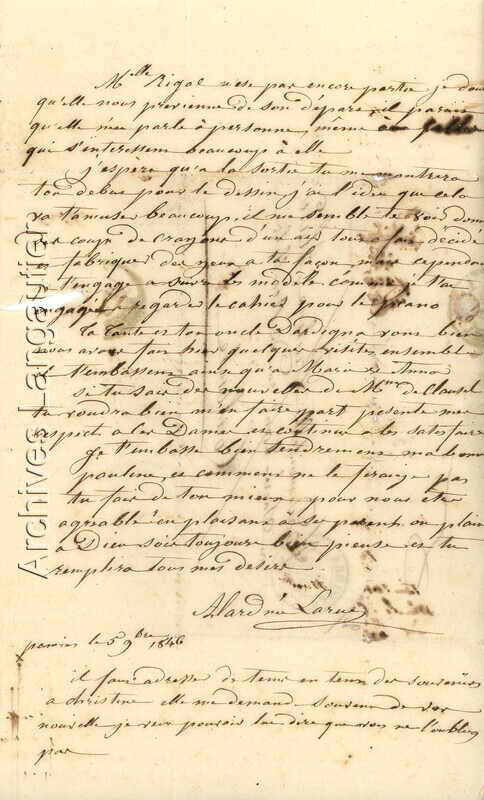 Melle Rigal n'est pas encore partie je doute
qu'elle nous previenne de son départ, il parait
qu'elle n'en parle à personne, même à
qui s'interessent beaucoup à elle
j'espère qu'a la sortie tu me montrera
ton debut pour le dessin j'ai l'idée que cela
va t'amuser beaucoup, il me semble te voir donner
coup de crayons d'un air tout a fait décidé
fabriquer des yeux a ta façon, mais cependant
t'engage a suivre les modèle comme je t'ai
engagée a regarder le cahier pour le piano
ta tante et ton oncle Dardigna vont bien
nous avons fait hier quelques visites ensemble
t'embrassent ainsi qu'a Marie et Anna
si tu sais des nouvelles de Mme de Clausel
tu voudra bien m'en faire part présente mes
respect a ces Dames et continue à les satisfaire
je t'embrasse bien tendrement ma bonne
pauline, et comment ne le ferai-je pas
tu fais de ton mieux pour nous être
agreable en plaisant à ses parents on plait
a Dieu sois toujours bien pieuse et tu
remplira tous mes desirs
Alard née Larue
pamiers le 5 9bre 1846
il faut adresser de tems en tems des souvenirs
a christine elle me demande souvent de vos
nouvelle je veux pouvoir lui dire que vous ne l'oubliez
pas
Archives Langautier